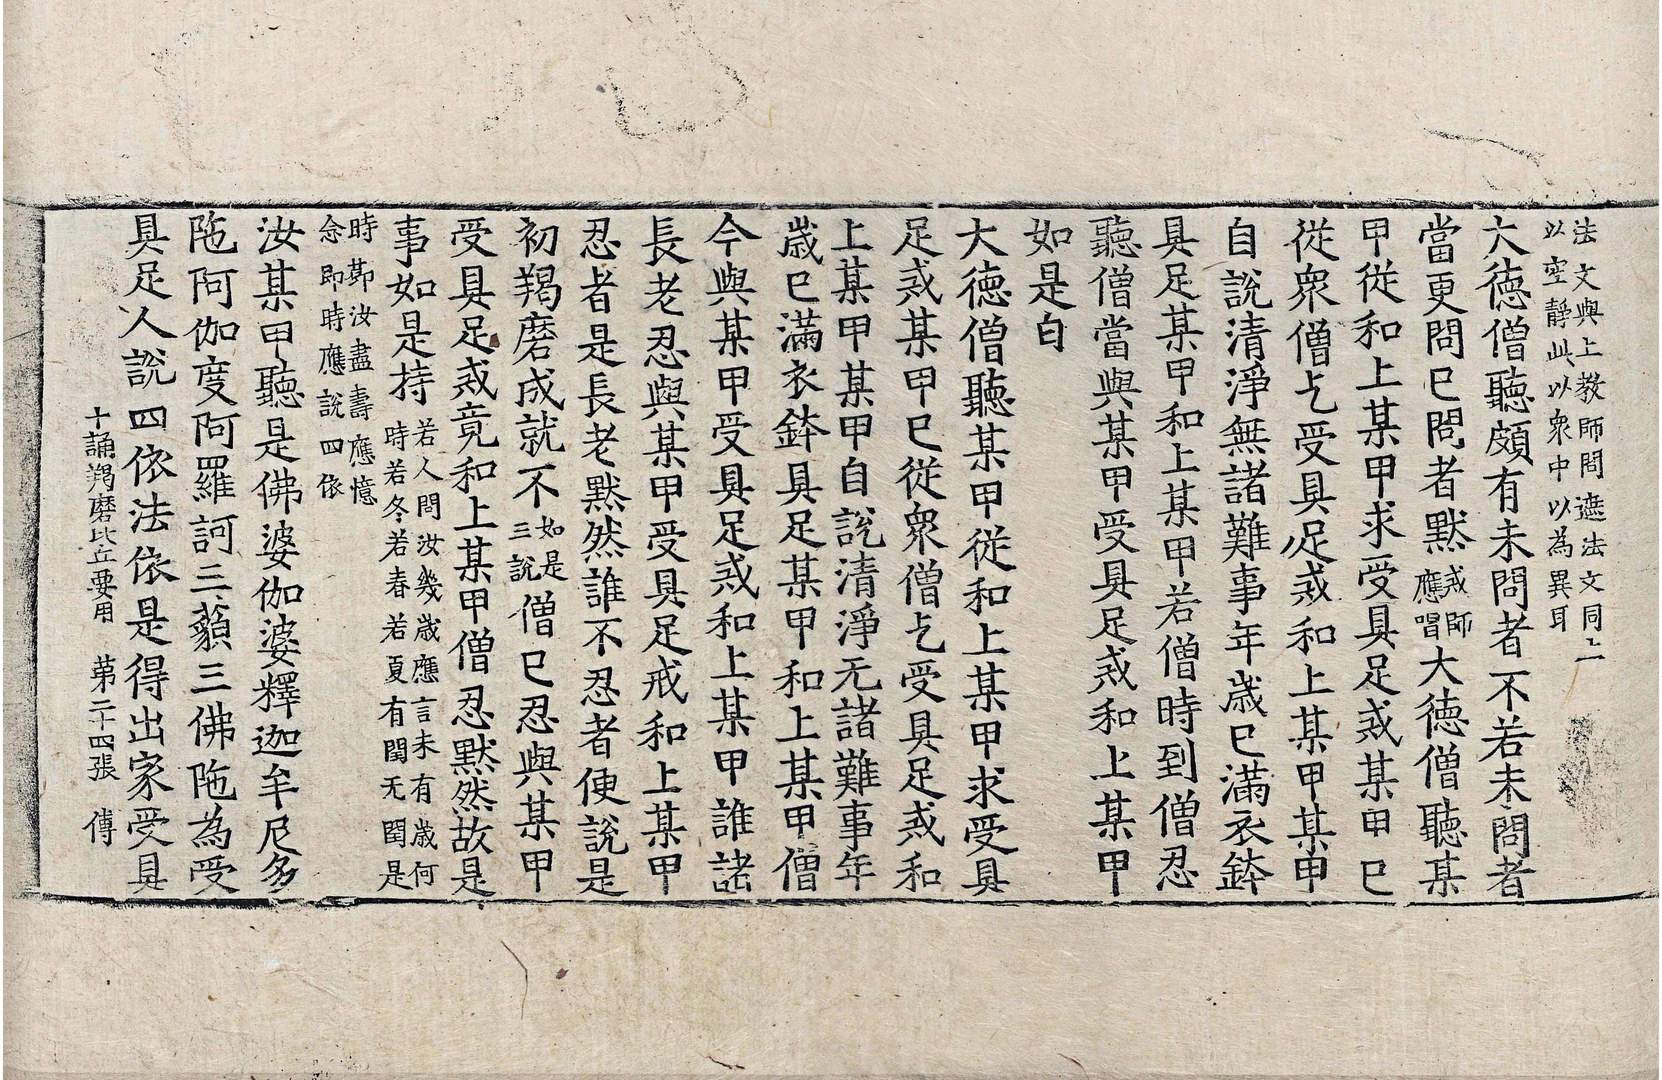 法文與上教師問遮法文同上
以空静此以衆中以為異耳
大徳僧聽頗有未問者不若未問者
當更問已問者黙戒師應唱大徳僧聽某
甲從和上某甲求受具足戒某甲已
從衆僧乞受具足戒和上某甲某甲
自說清淨無諸難事年歳已滿衣鉢
具足某甲和上某甲若僧時到僧忍
聽僧當與某甲受具足戒和上某甲
如是白
大徳僧聽某甲從和上某甲求受具
足戒某甲已從衆僧乞受具足戒和
上某甲某甲自說清淨无諸難事年
歳已滿衣鉢具足某甲和上某甲僧
今與某甲受具足戒和上某甲誰諸
長老忍與某甲受具足戒和上某甲
忍者是長老黙然誰不忍者便說是
初羯磨成就不如是三說僧已忍與某甲
受具足戒竟和上某甲僧忍黙然故是
事如是持若人問汝幾歳應言未有歳何
時若冬若春若夏有閏无閏是
時䒭汝盡壽應憶
念即時應說四依
汝某甲聽是佛婆伽婆釋迦牟尼多
陁阿伽度阿羅訶三藐三佛陁為受
具足人說四依法依是得出家受具
十誦羯磨比丘要用　第二十四張　傅